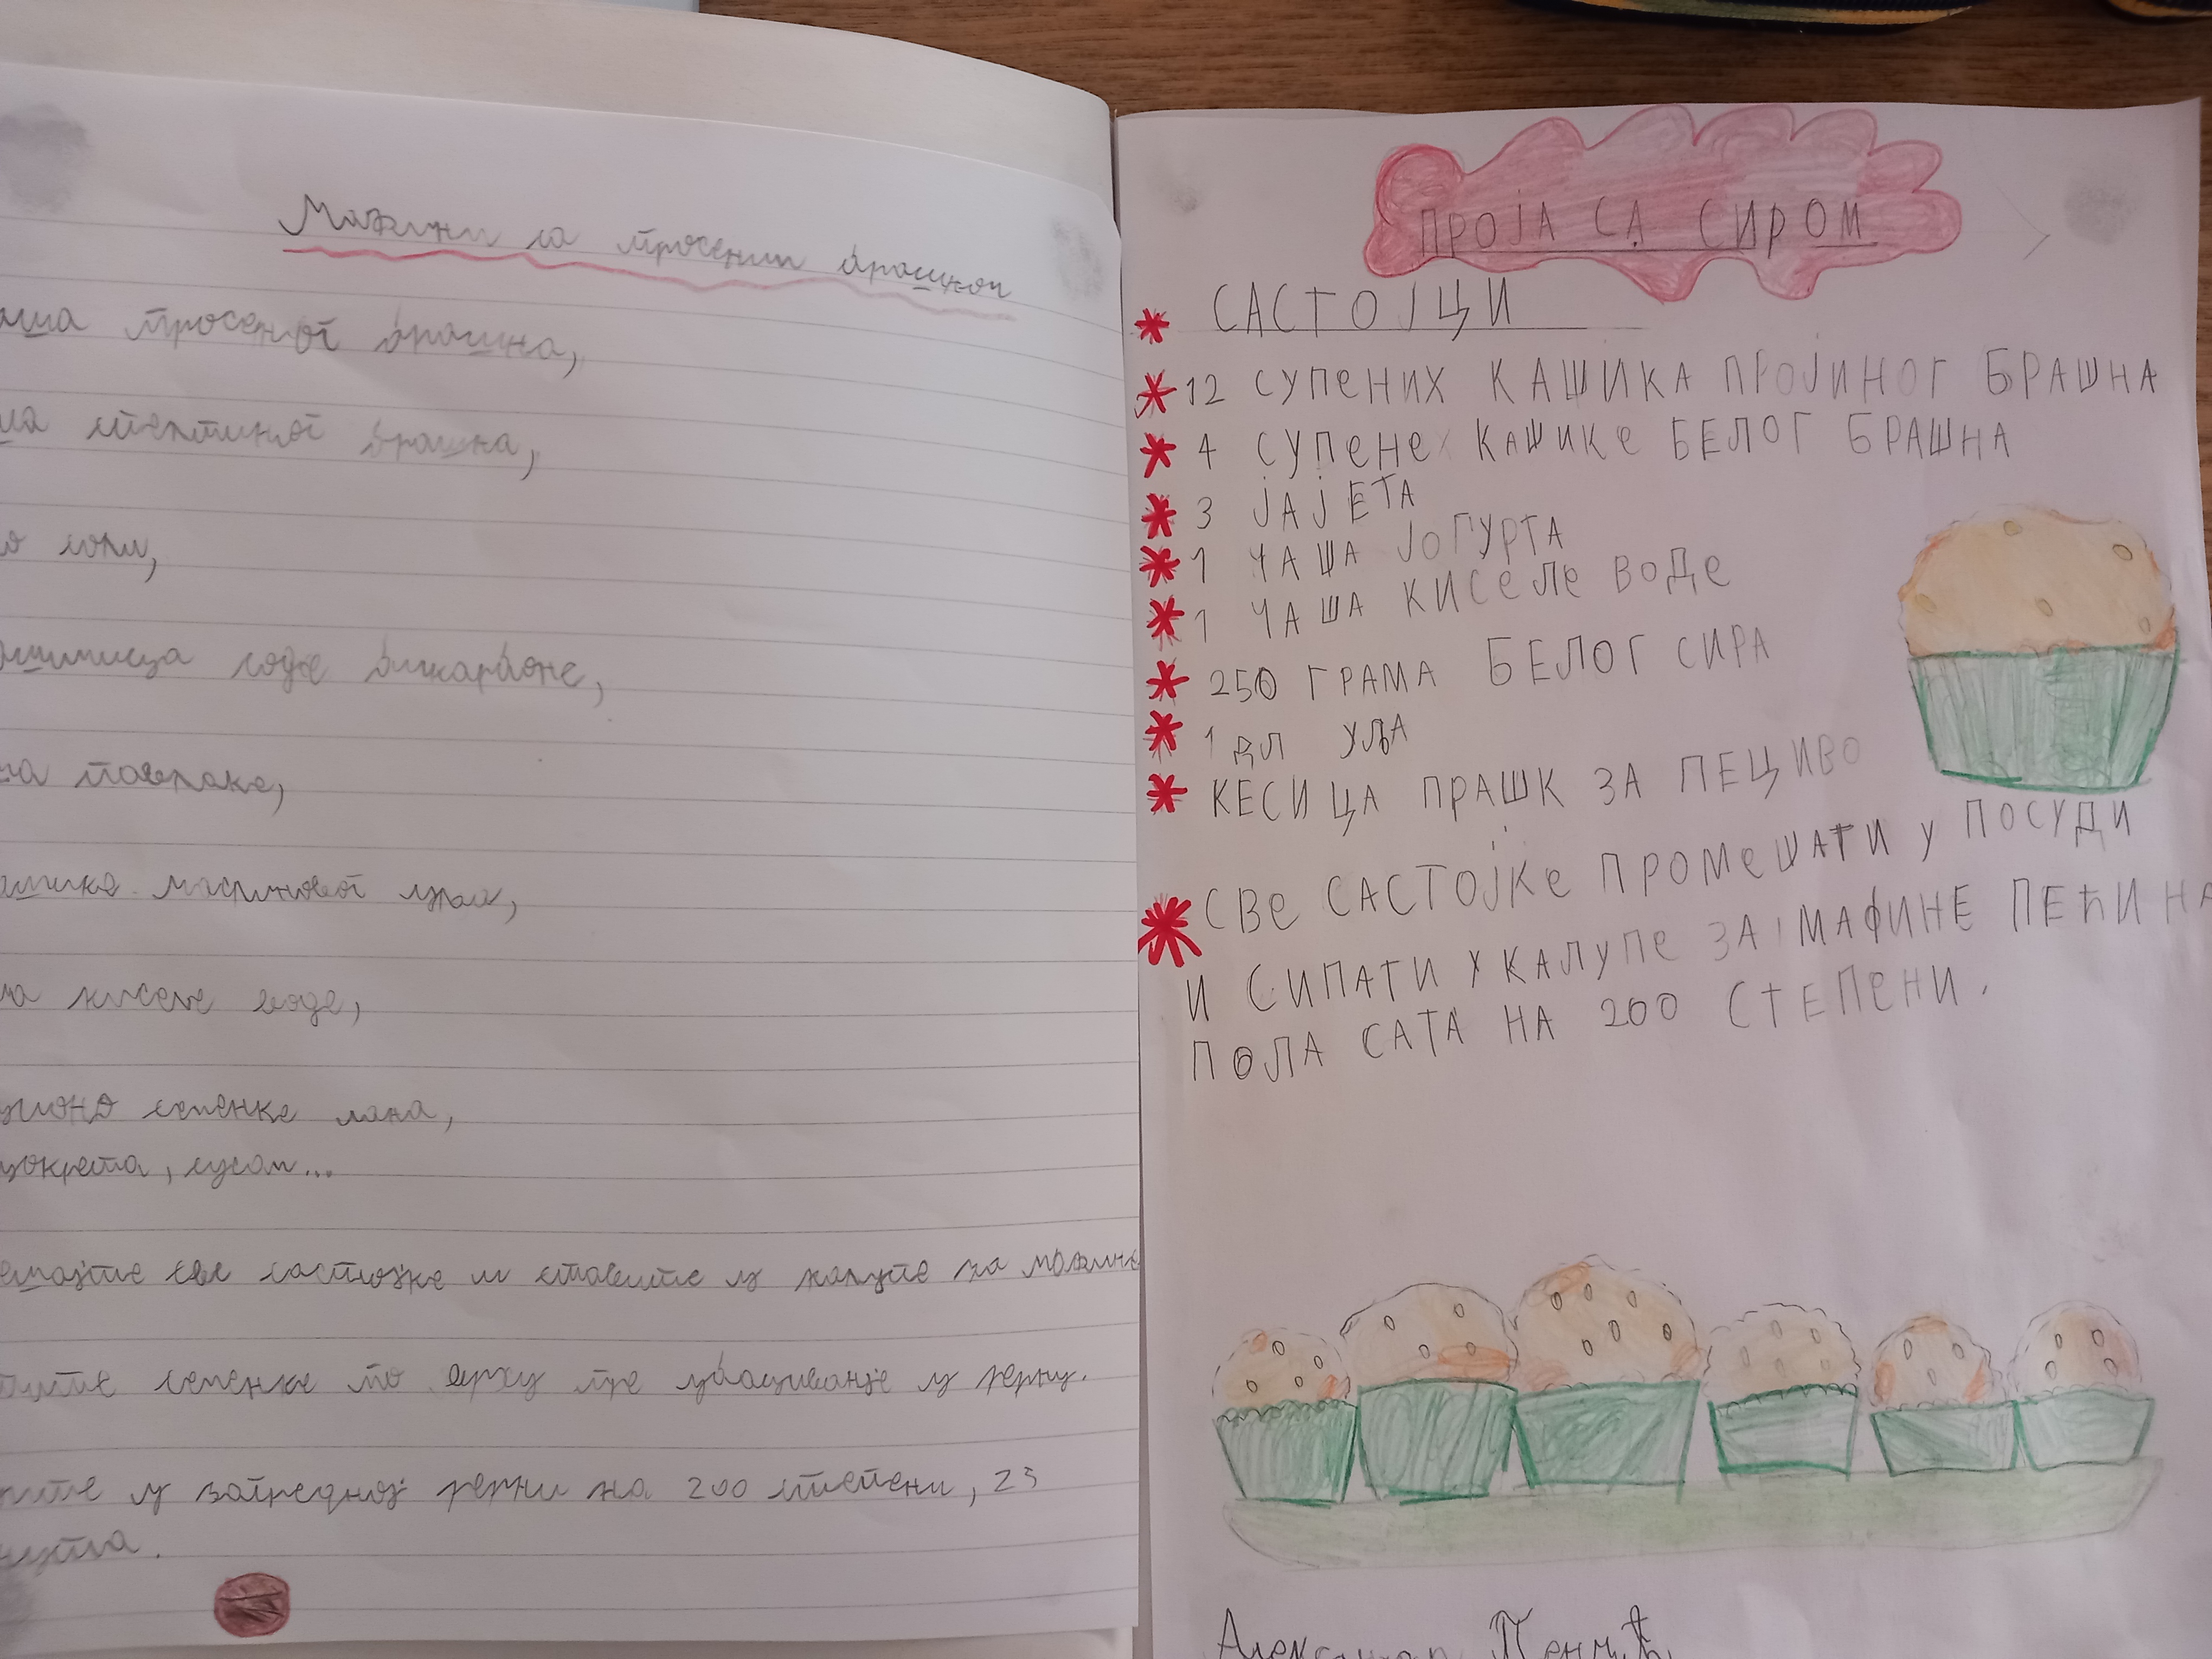 Мафини са просеним брашном
просеног брашна,
брашна,
соли,
соде бикарбоне,
павлаке,
маслиновог уља,
киселе воде,
семенке лана,
сусам...
све састојке и ставите у калупе за мафине
семенке по врху пре убацивања у рерну.
у загрејаној рерни на 200 степени, 25
ПРОЈА СА СИРОМ
САСТОЈЦИ
12 СУПЕНИХ КАШИКА ПРОЈИНОГ БРАШНА
4 СУПЕНЕ КАШИКЕ БЕЛОГ БРАШНА
3 ЈАЈЕТА
1 ЧАША ЈОГУРТА
1 ЧАША КИСЕЛЕ ВОДЕ
250 ГРАМА БЕЛОГ СИРА
1 ДЛ УЉА
КЕСИЦА ПРАШК ЗА ПЕЦИВО
СВЕ САСТОЈКЕ ПРОМЕШАТИ У ПОСУДИ
И СИПАТИ У КАЛУПЕ ЗА МАФИНЕ ПЕЋИ НА
ПОЛА САТА НА 200 СТЕПЕНИ.
Александар